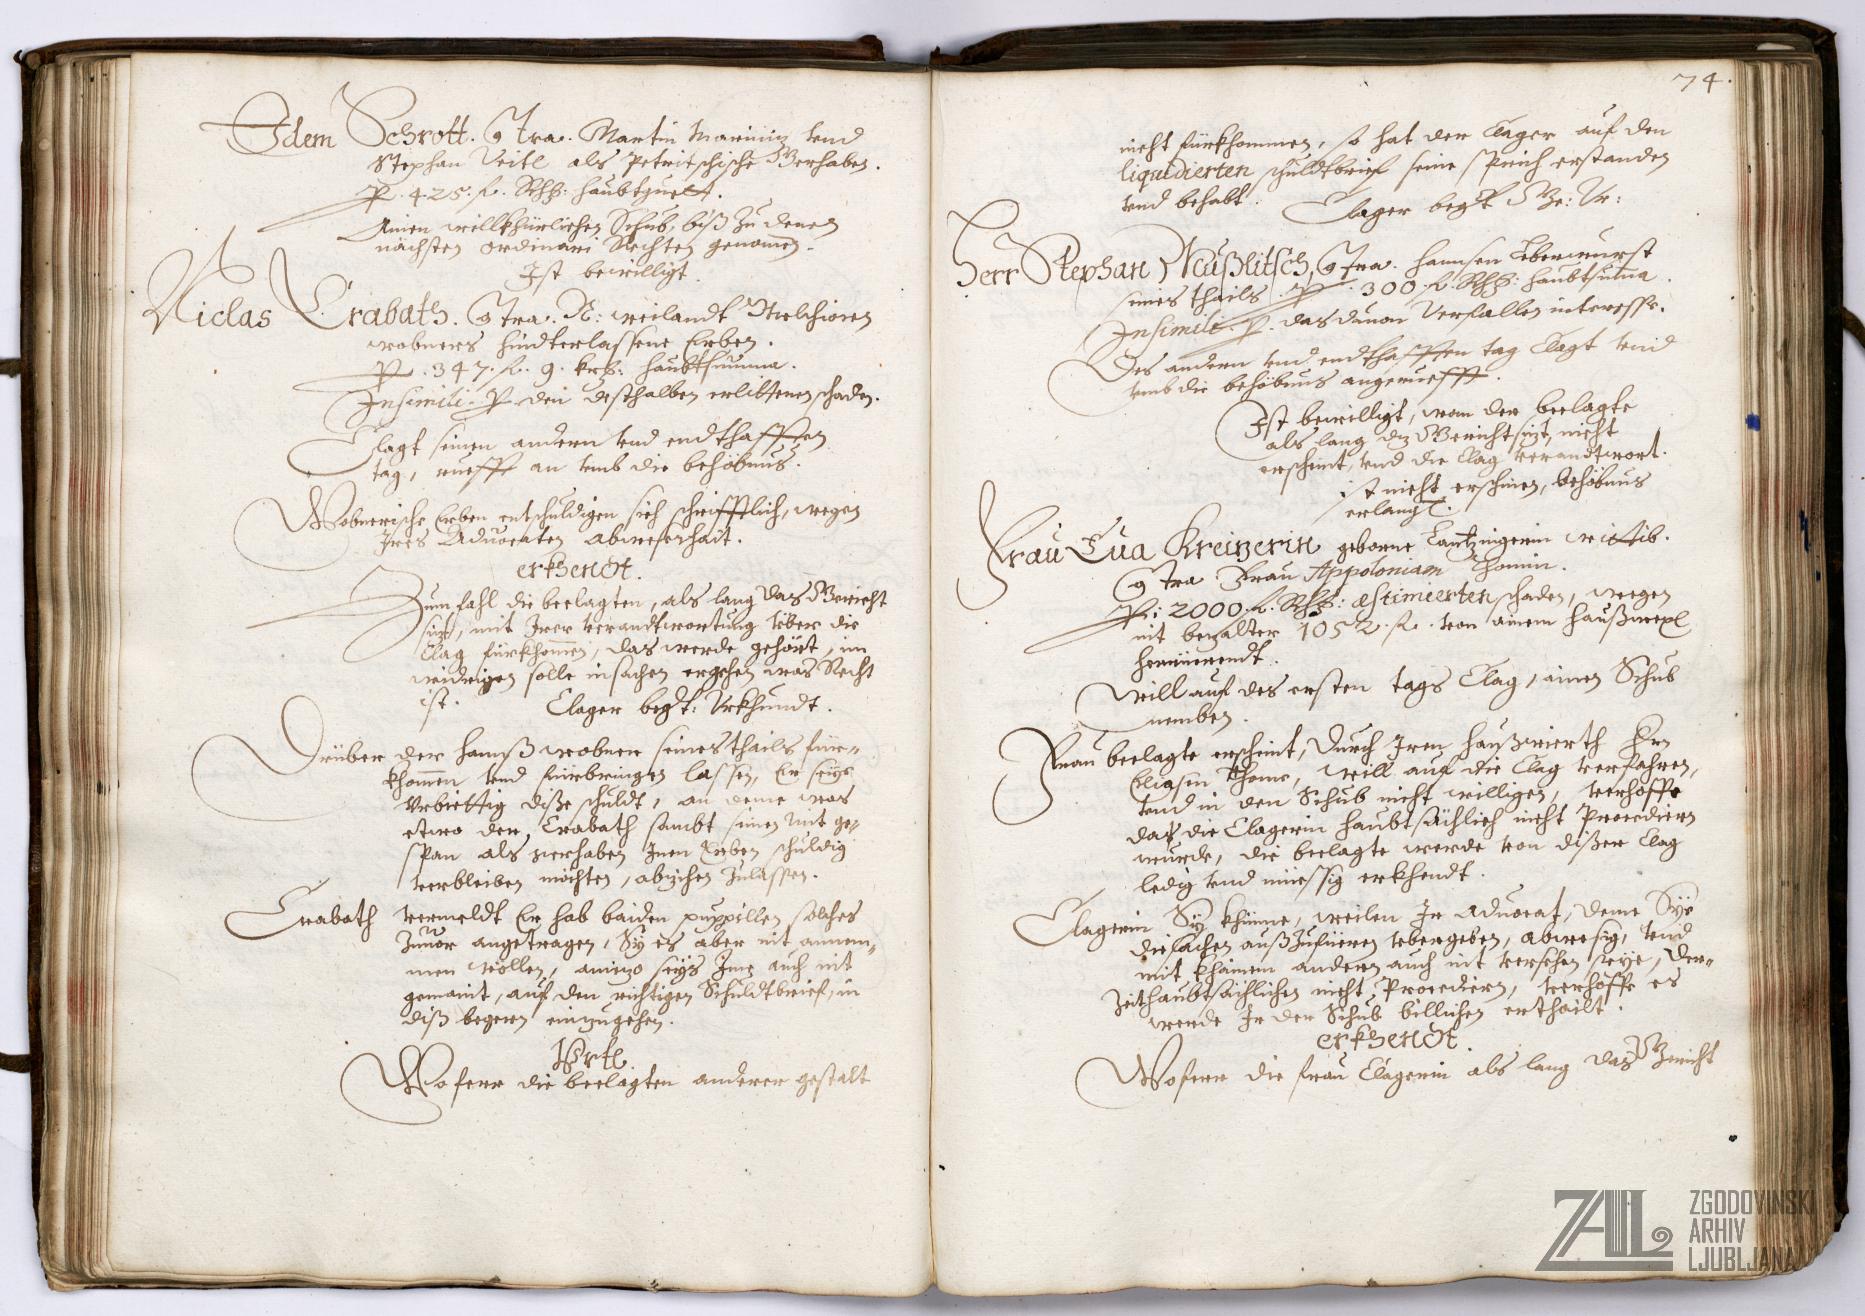 Idem Schrott. Contra. Martin Marinin vnd
Stephan Veitl als Petritschische Gerhaben.
P. 425. fl. Rh: haubtguett.
Ainen willkhürlichen Schub, biß zu denen
nächsten ordinari Rechten genomen.
Ist bewilligt.
Niclas Crabath. Contra. N: weilandt Melchioren
Wobners hindterlassene Erben.
P. 347. fl. 9. krz: haubtsumma.
Insimili. P. den desthalben erlittenen schaden.
Clagt seinen andern vnd endthafften
tag, ruefft an vmb die behöbnus.
Wobnerische Erben entschuldigen sich schrifftlich, wegen
Ires Aduocaten abwesenhait.
erkhendt.
Zum fahl die beclagten, als lang das Gericht
sizt, mit Irer verandtwortung vber die
Clag fürkhomen, das werde gehört, im
widrigen solle in sachen ergehen was Recht
ist. Clager begt: Vrkhundt.
Drüber der hannß Wobner seines thails für-
khomen vnd fürbringen lassen, Er seye
Vrbiettig diße schuldt, an deme was
etwo der Crabath sambt seinen mit ge-
span als gerhaben Inen Erben schuldig
verbleiben möchten, abzichen zulassen.
Crabath vermeldt Er hab baiden puppillen solches
zuuor angetragen, Sy es aber nit annem-
men wöllen, aniezo seye Ime auch nit
gemaint, auf den richtigen Schuldtbrief, in
diß begern einzugehen.
Vrtl.
Wofern die beclagten anderer gestalt
74.
nicht fürkhommen, so hat der Clager auf den
liquidierten schuldtbrief seine sprüch erstanden
vnd behabt. Clager begt Ge: Vr:
Herr Stephan Nußlitsch, Contra. hannsen Eberwurst
seines thails. P. 300. fl. Rh: haubtsuma.
Insimili P. das dauon verfallen interesse.
Des andern vnd endthafften tag Clagt vnd
vmb die behöbnus angeruefft.
Ist bewilligt, wan der beclagte
als lang daz Gericht sizt, nicht
erscheint, vnd die Clag verandtwort.
ist nicht erschinen, behöbnus
erlangt.
Frau Eua Kreizerin geborne Cantzingerin wittib.
Contra Frau Appoloniam Thomin.
P: 2000. fl. Rh: æstimeerten schaden, wegen
nit bezalter 1052. fl. von ainem haußwexl
herrüerendt.
Will auf des ersten tags Clag, ainen Schub
nemben.
Frau beclagte erscheint, durch Iren haußwierth Hrn
Eliasn Thome, will auf die Clag verfahren,
vnd in den Schub nicht willigen, verhoffe
das die Clagerin haubtsächlich nicht Procediern
wurde, die beclagte werde von dißer Clag
ledig vnd müessig erkhendt.
Clagerin Sy khünne, weilen Ir Aduocat, deme Sye
die sachen außzufüeren vbergeben, abwesig, vnd
mit khainem andern auch nit versehen seye, der-
zeit haubtsächlichen nicht Procediern, verhoffe es
werde Ir der Schub billichen erthailt.
erkhendt.
Wofern die frau Clagerin als lang das Gericht
ZGODOVINSKI
ARHIV
LJUBLJANA